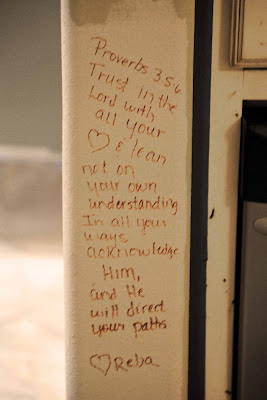 Proverbs 3:5,6
Trust in the
Lord with
all your
♡ & lean
not on
your own
understanding
In all your
ways
acknowledge
Him,
and He
will direct
your paths
♡ Reba